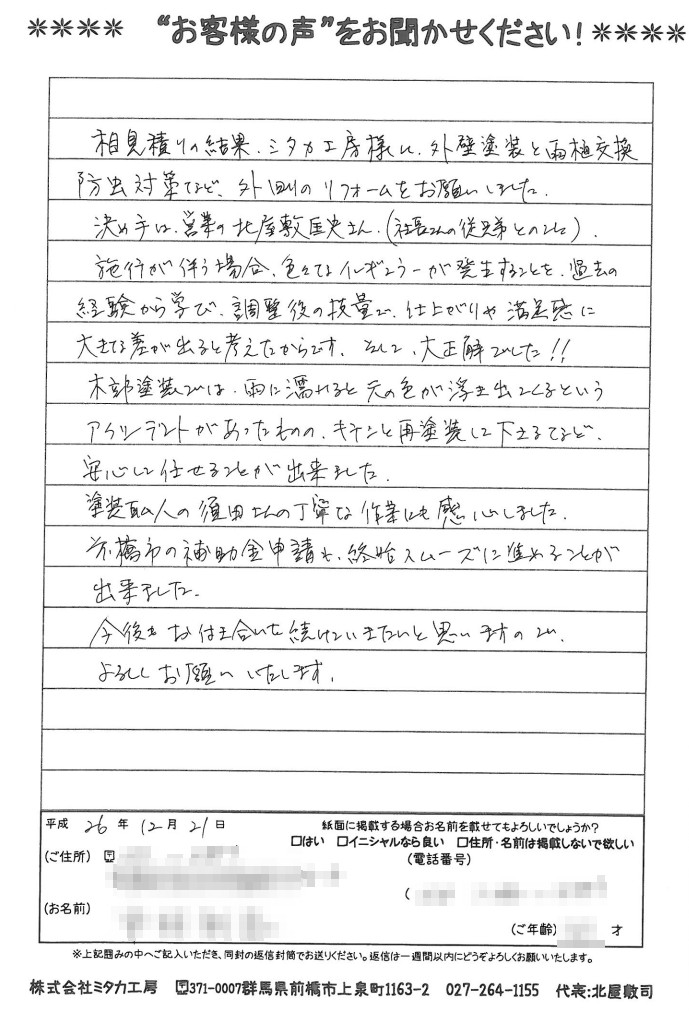 **** "お客様の声"をお聞かせください! ****
相見積りの結果、ミタカ工房様に、外壁塗装と雨樋交換
防虫対策など、外回りのリフォームをお願いしました。
決め手は、営業の北屋敷匡史さん。(社長さんの従兄弟とのこと)。
施行が伴う場合、色々なイレギュラーが発生することを、過去の
経験から学び、調整後の技量で、仕上がりや満足感に
大きな差が出ると考えたからです。そして、大正解でした!!
木部塗装では、雨に濡れると元の色が浮き出てくるという
アクシデントがあったものの、キチンと再塗装して下さるなど、
安心して任せることが出来ました。
塗装職人の須田さんの丁寧な作業にも感心しました。
前橋市の補助金申請も、終始スムーズに進めることが
出来ました。
今後もお付き合いを続けていきたいと思いますので、
よろしくお願いいたします。
平成 26 年 12 月 21 日
紙面に掲載する場合お名前を載せてもよろしいでしょうか?
□はい □イニシャルなら良い □住所・名前は掲載しないで欲しい
(ご住所) 〒
(電話番号)
(
(お名前)
(ご年齢) 才
※上記囲みの中へご記入いただき、同封の返信封筒でお送りください。返信は一週間以内にどうぞよろしくお願いいたします。
株式会社ミタカ工房 〒371-0007群馬県前橋市上泉町1163-2 027-264-1155 代表:北屋敷司